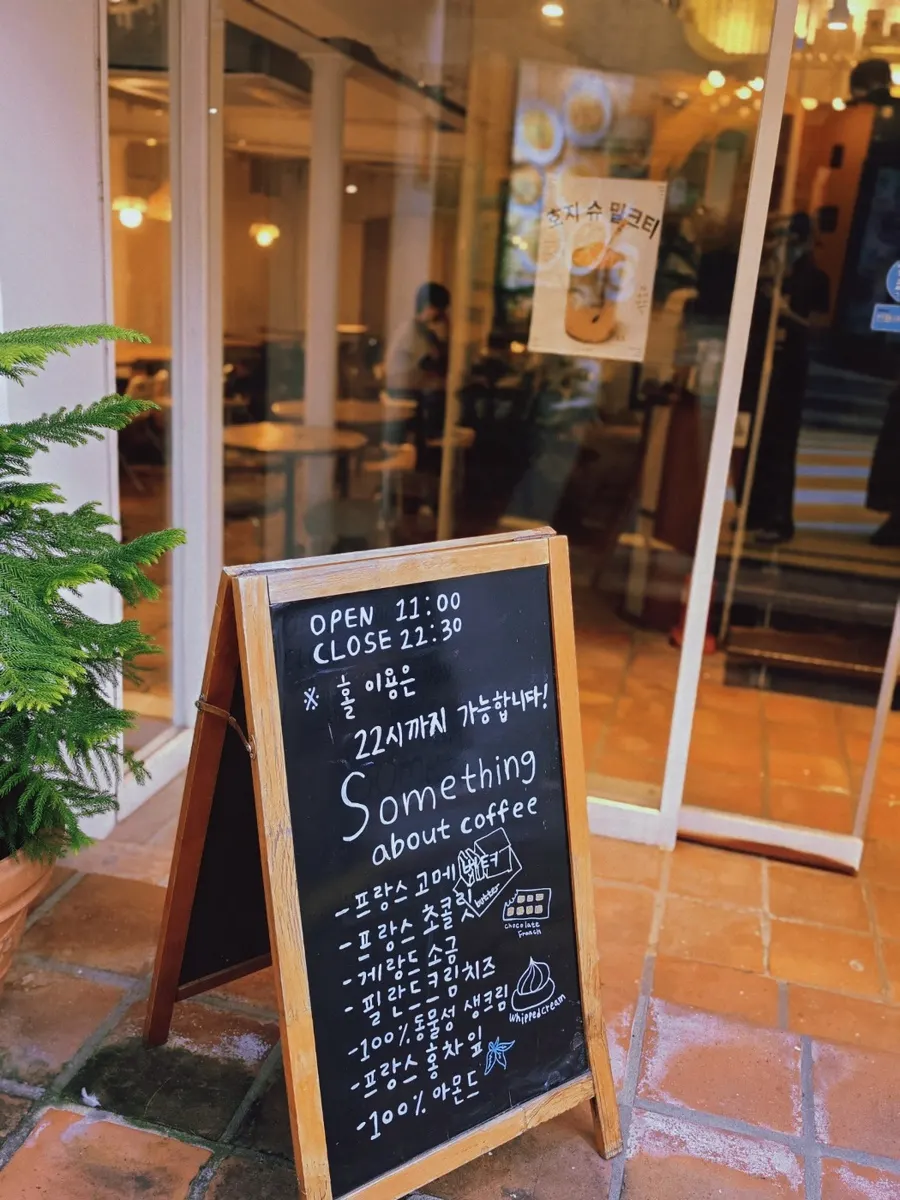 호지 슈 밀크티
OPEN 11:00
CLOSE 22:30
※ 홀 이용은
22시까지 가능합니다!
Something
about coffee
-프랑스 고메버터
butter
-프랑스 초콜릿
chocolate
French
-게랑드 소금
-필란드크림치즈
-100%동물성 생크림
Whipped cream
-프랑스 홍차 잎
-100% 아몬드